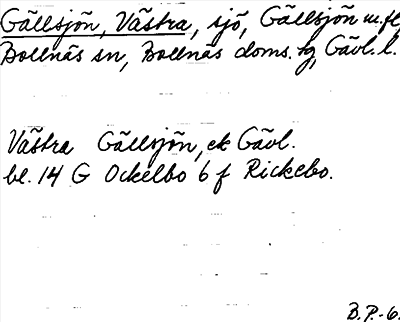 Gällsjön, Västra, sjö, Gällsjön m.fl
Bollnäs sn, Bollnäs doms. hg, Gävl. l.
Västra Gällsjön, ek Gävl.
bl. 14 G Ockelbo 6 f Rickebo.
B.P.-6